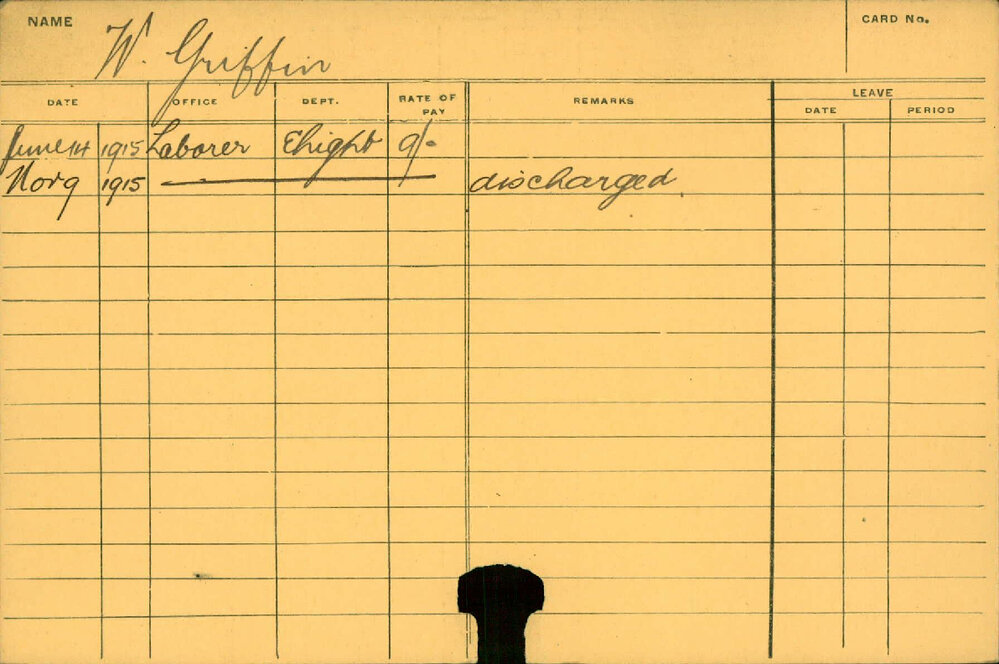 NAME W. Griffin CARD No.
DATE OFFICE DEPT. RATE OF PAY REMARKS LEAVE
DATE PERIOD
June 14 1915 Laborer Elight 9/-
Nov 9 1915 discharged